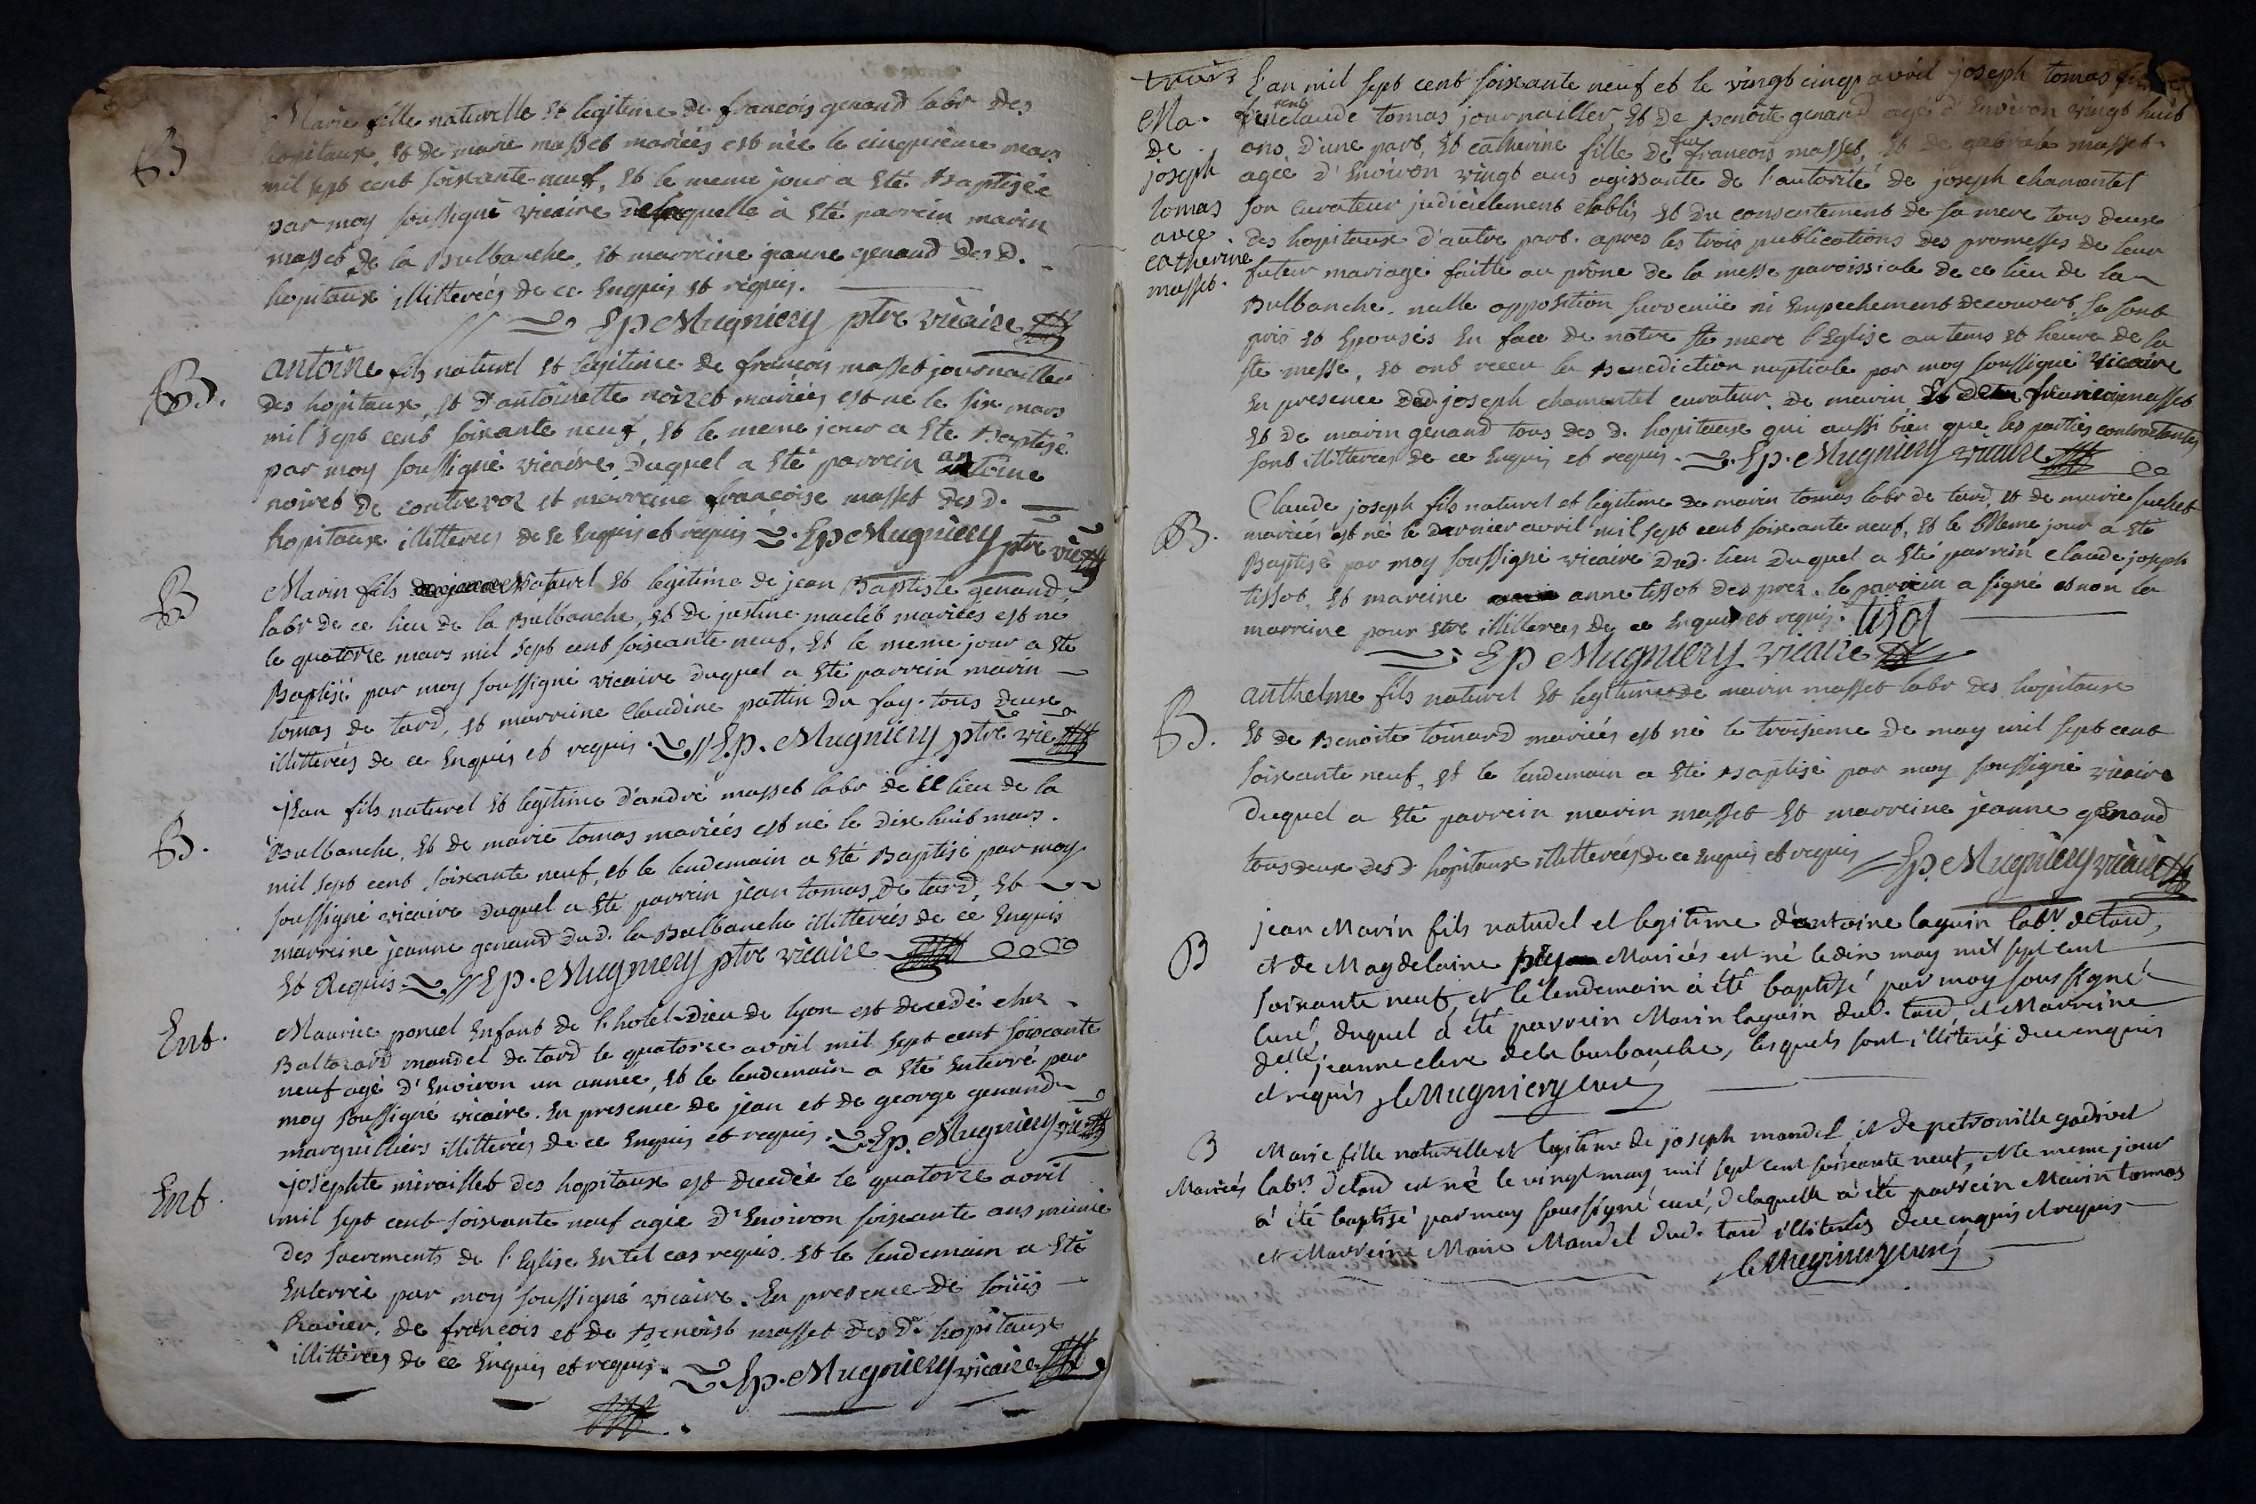 B
Marie fille naturelle et legitime de francois genand labr des
hopitaux, et de marie masset mariées est née le cinquieme mars
mil sept cent soixante neuf, et le meme jour a été Baptisée
par moy soussigné vicaire de laquelle à été parrein marin
masset de la Bulbanche, et marreine jeanne genand des d.
hopitaux illitterées de ce Enquis et requis.
Ep Mugniery ptre vicaire
B.
antoine fils naturel et legitime de francois masset journailler
des hopitaux, et d'antoinette noiret mariées est né le six mars
mil sept cent soixante neuf, et le meme jour a été Baptisé
par moy soussigné vicaire duquel a été parrein antoine
noiret de contrevoz et marreine françoise masset des d.
hopitaux illitterees de ce Enquis et requis. Ep Mugniery ptre vic
B
Marin fils naturel et legitime de jean Baptiste genand
labr de ce lieu de la Bulbanche, et de justine maclet mariées est né
le quatorze mars mil sept cent soixante neuf, et le meme jour a été
Baptisé par moy soussigné vicaire duquel a été parrein marin
tomas de tard, et marreine Claudine pattin du fay. tous deux
illitterées de ce Enquis et requis. Ep. Mugniery ptre vic
B.
jean fils naturel et legitime d'andré masset labr de ce lieu de la
Bulbanche, et de marie tomas mariées est né le dix huit mars.
mil sept cent soixante neuf, et le lendemain a été Baptisé par moy
soussigné vicaire duquel a été parrein jean tomas de tard et
marreine jeanne genand dud. la Bulbanche illitterées de ce Enquis
et Requis. Ep. Mugniery ptre vicaire
Ent.
Maurice poncel Enfant de l'hotel-Dieu de lyon est decedé chez
Baltazard mandel de tard le quatorze avril mil sept cent soixante
neuf agé d'Environ un année, et le lendemain a été Enterré par
moy soussigné vicaire. En presence de jean et de george genand
marguilliers illitterées de ce Enquis et requis. Ep. Mugniery vic
Ent.
josephte miraillet des hopitaux est decedée le quatorze avril
mil sept cent soixante neuf agée d'Environ soixante ans munie
des sacrements de l'Eglise En tel cas requis. et le lendemain a été
Enterrée par moy soussigné vicaire. En presence de loüis
Ravier, de francois et de Benoist masset des d. hopitaux
illitterées de ce Enquis et requis. Ep. Mugniery vicaire
trois
Ma.
de
joseph
tomas
avec
catherine
masset.
L'an mil sept cent soixante neuf et le vingt cinq avril joseph tomas fils
de feu claude tomas journailler et de Benoite genand agé d'Environ vingt huit
ans d'une part, et catherine fille de feu francois masset, et de gabriele masset
agée d'Environ vingt ans agissante de l'autorité de joseph chamontel
son curateur judiciellement etablis et du consentement de sa mere tous deux
des hopitaux d'autre part. apres les trois publications des promesses de leur
futur mariage faitte au prône de la messe paroissiale de ce lieu de la
Bulbanche. nulle opposition survenüe ni Empechement decouvert, se sont
pris et Epousés En face de notre ste mere l'Eglise au tems et heure de la
ste messe, et ont receu la Benediction nuptiale par moy soussigné vicaire
En presence dud. joseph chamontel curateur. de marin et de francois masset
et de marin genand tous des d. hopitaux qui aussi bien que les parties contractantes
sont illitterees de ce Enquis et requis. Ep. Mugniery vicaire
B.
Claude joseph fils naturel et legitime de marin tomas labr de tard, et de marie suchet
mariées est né le dernier avril mil sept cent soixante neuf, et le meme jour a été
Baptisé par moy soussigné vicaire dud. lieu duquel a été parrein claude joseph
tissot, et mareine anne tissot des prez. le parrein a signé et non la
marreine pour être illitterees de ce Enquis et requis. tisot
Ep Mugniery vicaire
B.
anthelme fils naturel et legitime de marin masset labr des hopitaux
et de Benoite toinard mariées est né le troisieme de may mil sept cent
soixante neuf, et le lendemain a été Baptisé par moy soussigné vicaire
duquel a été parrein marin masset et marreine jeanne genand
tous deux des d hopitaux illitterées de ce Enquis et requis Ep. Mugniery vicaire
B
jean Marin fils naturel et legitime d'antoine laguin labr. de tard,
et de Magdelaine Mariés est né le dix may mil sept cent
soixante neuf, et le lendemain à été baptisé par moy soussigné
curé, duquel à été parrein Marin laguin dud. tard, et Marreine
delle jeanne clere de la burbanche, lesquels sont illiterés de ce enquis
et requis Mugniery curé
B
Marie fille naturelle et legitime de joseph mandel, et de petronille gadivet
Mariés labrs detard est né le vingt may mil sept cent soixante neuf, et le meme jour
à été baptisé par moy soussigné curé, de laquelle à été parrein Marin tomas
et Marreine Marie Mandel dud. tard illiterés de ce enquis et requis
Mugniery curé